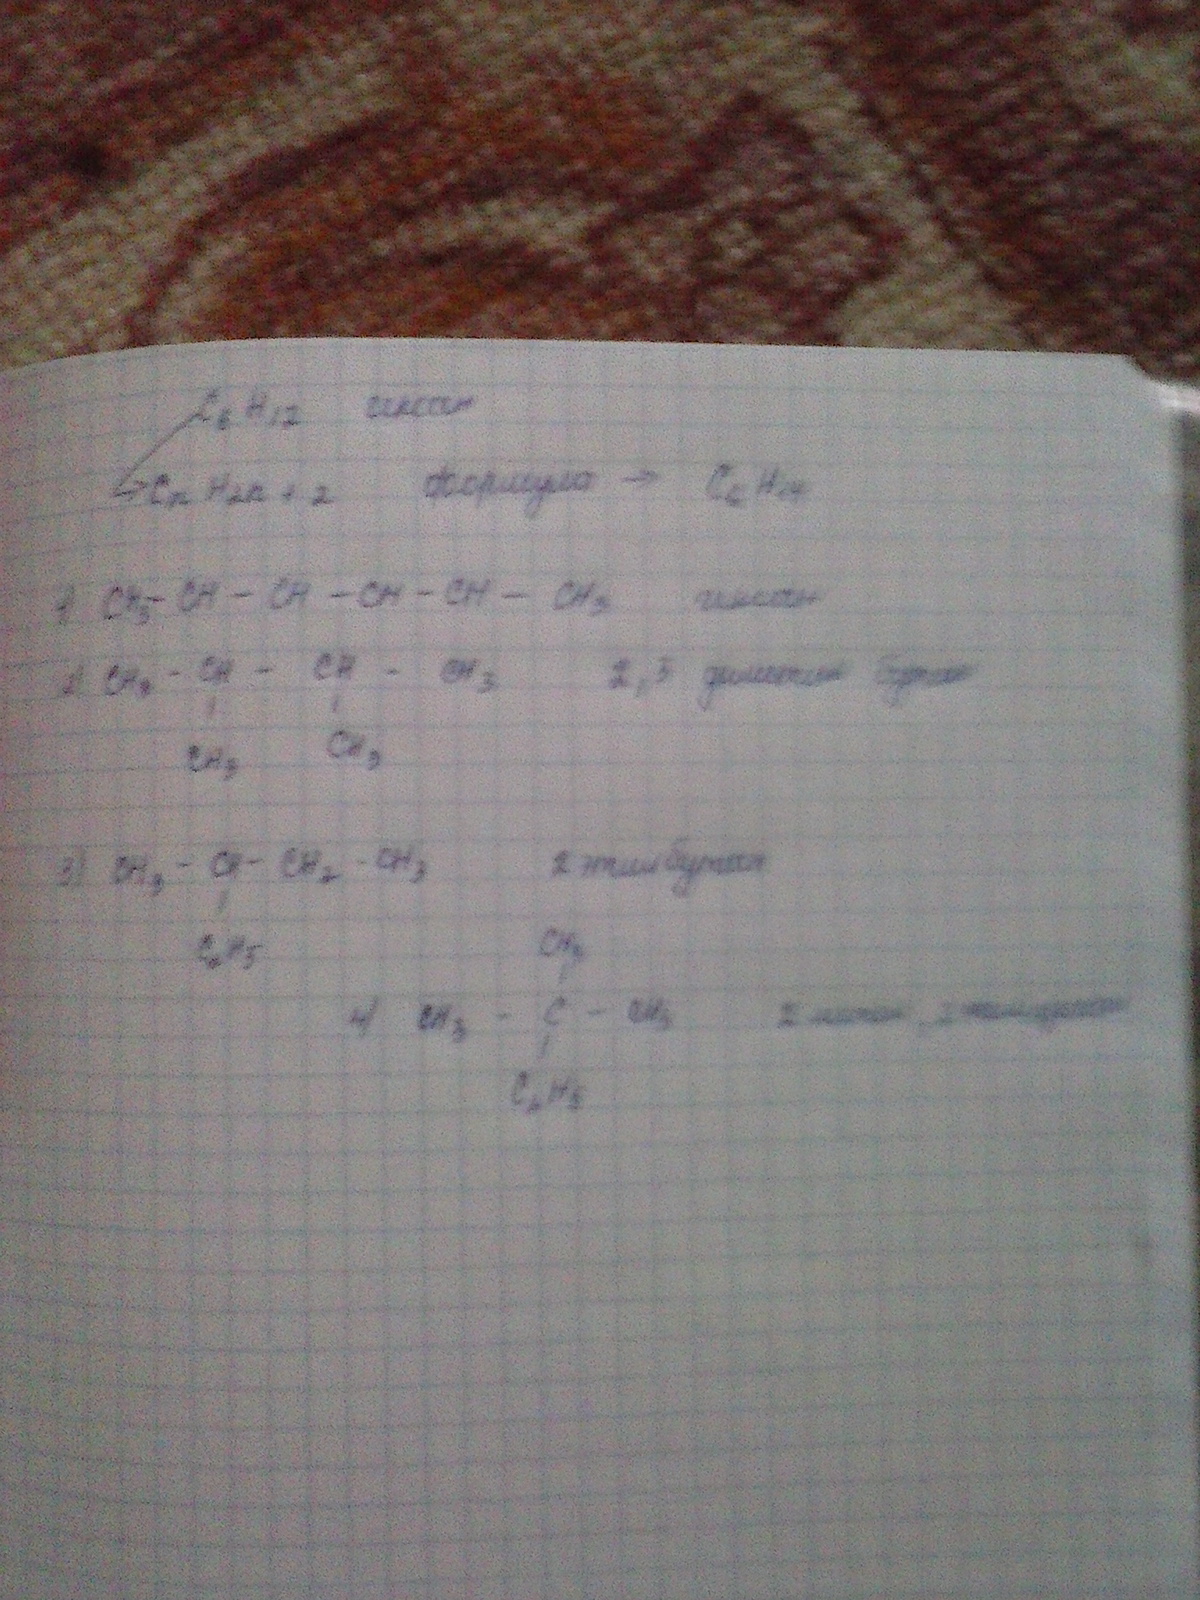 C₆H₁₂ гексан
CₙH₂ₙ+2 Формула → C₆H₁₄
1) CH₃ - CH - CH - CH - CH - CH₃ гексан
2) CH₃ - CH - CH - CH₃ 2,3 диметил бутан
CH₃ CH₃
3) CH₃ - CH - CH₂ - CH₃ 2 этилбутан
C₂H₅
CH₃
4) CH₃ - C - CH₃ 2 метил, 2
C₂H₅